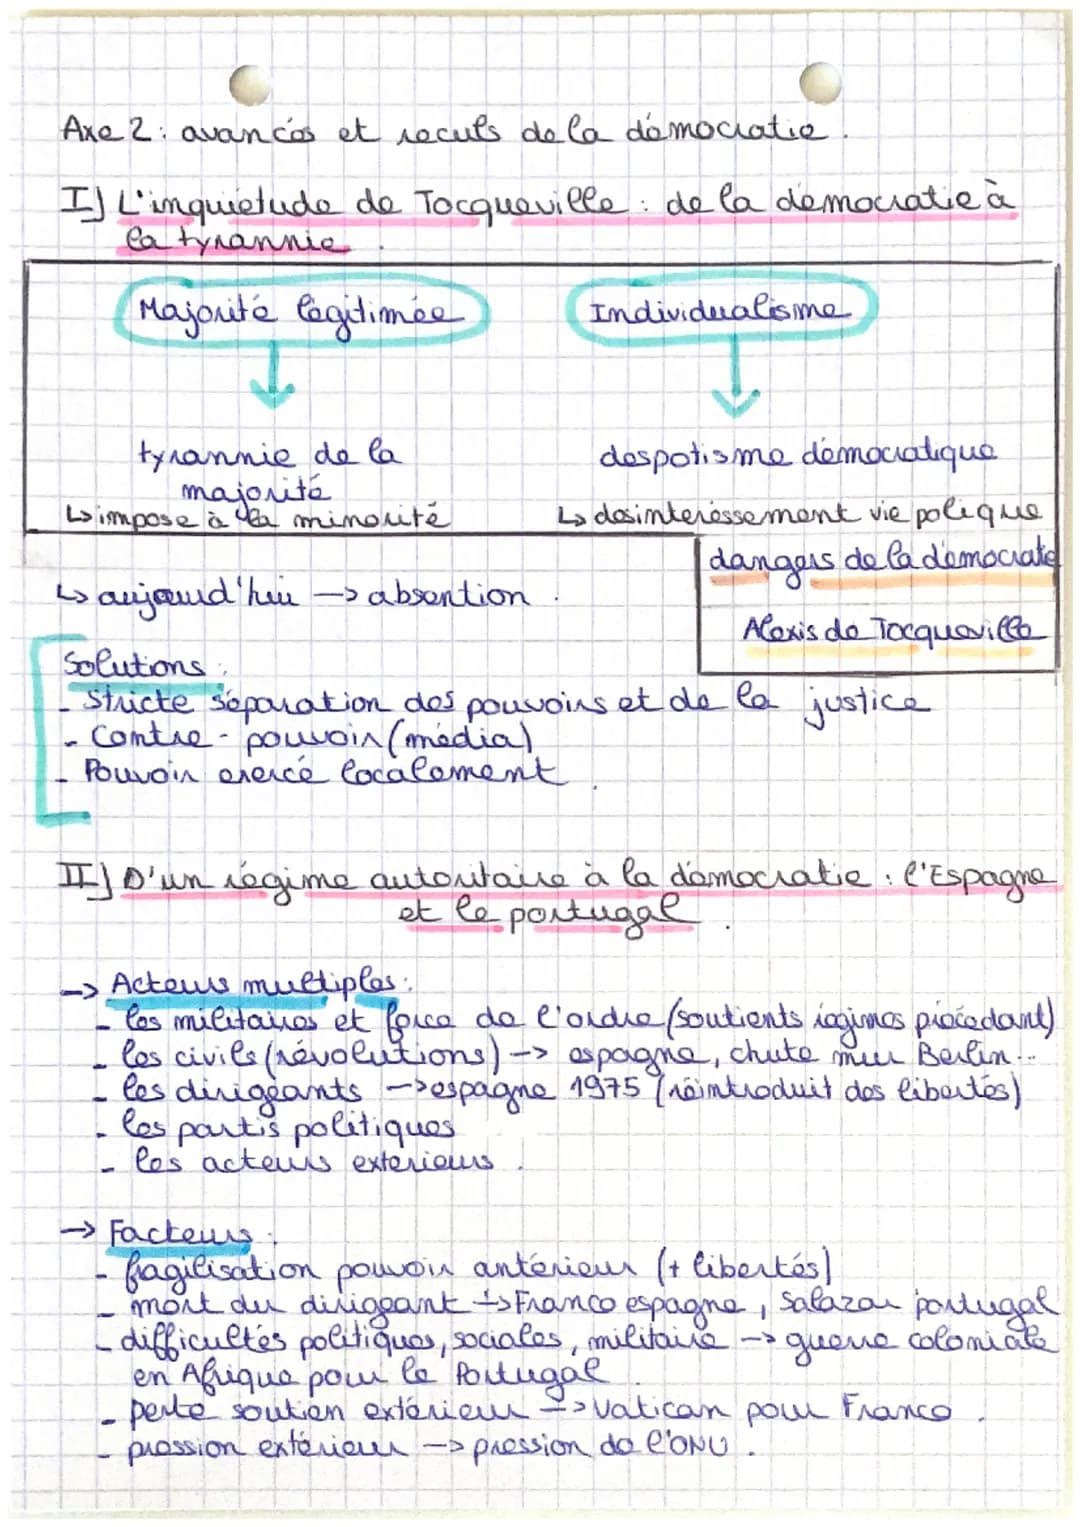 Axe 2 : avancés et reculs de la démocratie.
I) L'inquiétude de Tocqueville : de la démocratie à
la tyrannie.
Majorité légitimée
Individualisme
tyrannie de la
majorité
↳ impose à la minorité
despotisme démocratique
↳ desinteréssement vie polique
dangers de la démocratie
Alexis de Tocqueville
↳ aujourd'hui → absention.
Solutions :
- Stricte séparation des pouvoirs et de la justice
- Contre-pouvoir (média)
- Pouvoir exercé localement.
II) D'un régime autoritaire à la démocratie : l'Espagne
et le portugal.
→ Acteurs multiples :
- les militaires et force de l'ordre (soutients régimes précédant)
- les civils (révolutions) → espagne, chute mur Berlin...
- les dirigeants → espagne 1975 (réintroduit des libertés)
- les partis politiques
- les acteurs exterieurs.
→ Facteurs :
- fragilisation pouvoir antérieur (+ libertés)
- mort du dirigeant ↳ Franco espagne, Salazar portugal
- difficultés politiques, sociales, militaire → guerre coloniale
en Afrique pour le Portugal.
- perte soutien extérieur → Vatican pour Franco.
- pression extérieur → pression de l'ONU.